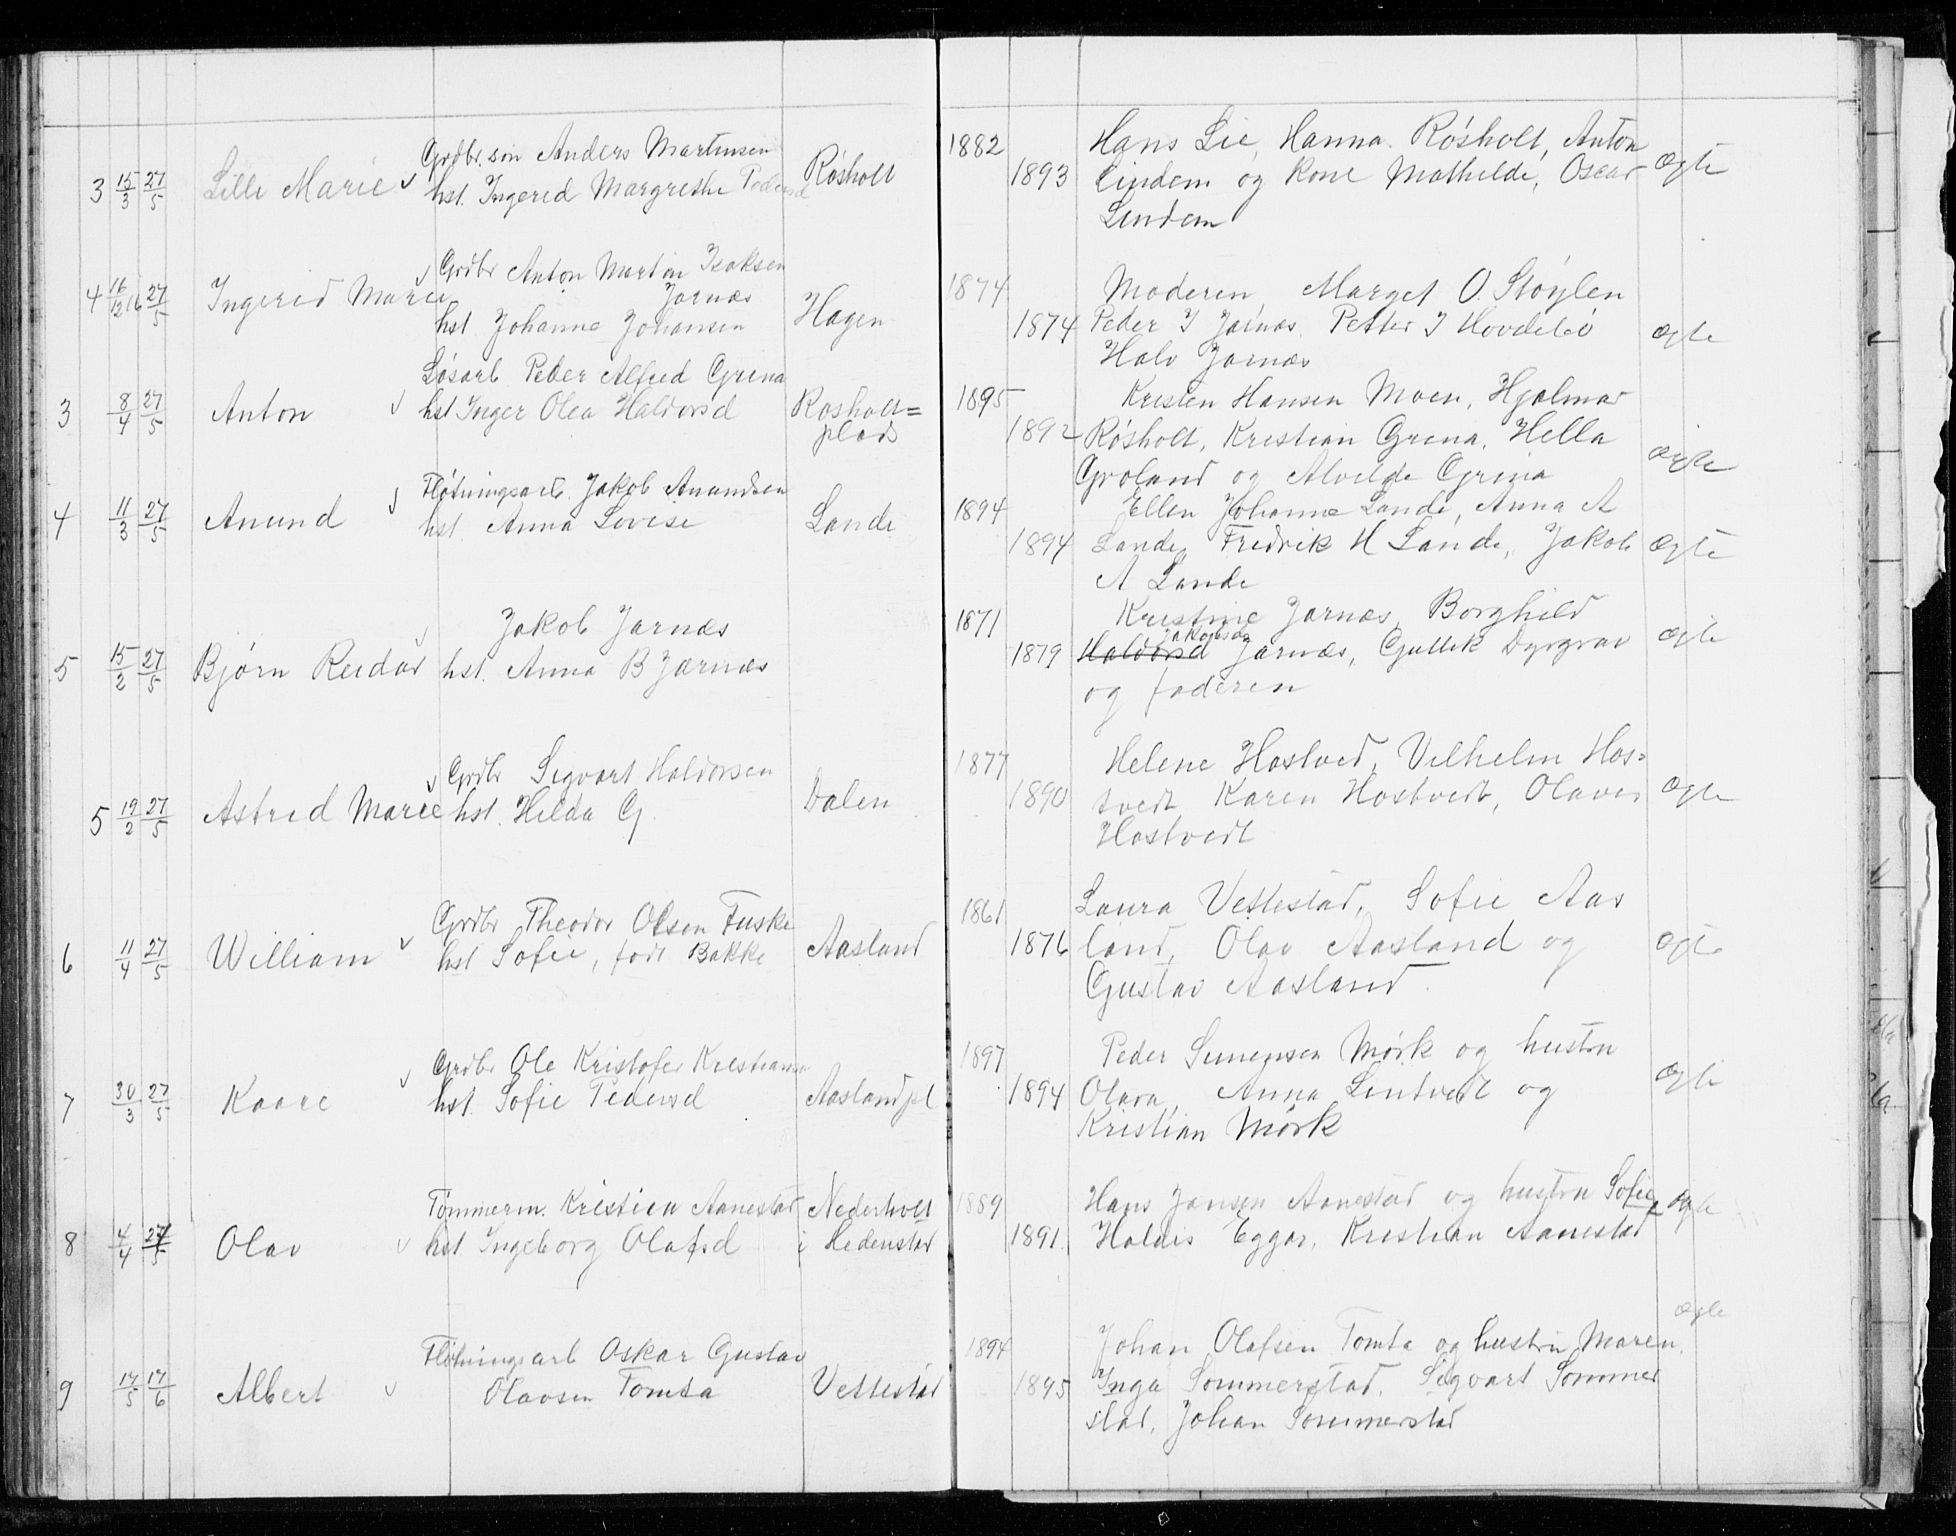 3 15/3 27/5 Lille Marie Grdbr.søn Anders Martinsen Røsholt 1882 Hans Lie, Hanna Røsholt, Anton
hst. Ingerid Margrethe Pedersd 1893 Lindem og Kone Mathilde, Oscar ægte
Lindem
4 16/12 16 27/5 Ingerid Marie Grdbr Anton Martin Isaksen 1874 Moderen, Marget O. Støylen
Jarnæs Hagen
hst. Johanne Johansen 1874 Peder I Jarnæs, Petter I ægte
Halv Jarnæs
3 8/4 27/5 Anton Løsarb. Peder Alfred Grina 1895 Kristen Hansen Moen, Hjalmar
hst Inger Olea Haldorsd Røsholt= 1892 Røsholt, Kristian Grina, Hella
plads Groland og Alvilde Grina ægte
4 11/3 27/5 Anund Fløtningsarb. Jakob Anundsen 1894 Ellen Johanne Lande, Anna A
hst. Anna Lovise Lande 1894 Lande, Fredrik H Lande, Jakob ægte
A Lande
5 15/2 27/5 Bjørn Reidar Jakob Jarnæs 1871 Kristine Jarnæs, Borghild
Jakobsd
hst. Anna B Jarnæs 1879 Haldorsd Jarnæs, Gullik Dyrgrav ægte
og faderen
5 19/2 27/5 Astrid Marie Grdbr Sigvart Haldorsen Dalen 1877 Helene Hostved, Vilhelm Hos=
hst. Hilda G. 1890 tvedt, Karen Hostvedt, Olaves ægte
Hostvedt
6 11/4 27/5 William Grdbr Theodor Olsen Fuske 1861 Laura Vettestad, Sofie Aas
hst Sofie, født Bakke Aasland 1876 land, Olav Aasland og ægte
Gustav Aasland
7 30/3 27/5 Kaare Grdbr Ole Kristofer Kristiansen 1897 Peder Simensen Mørk og hustru
hst. Sofie Pedersd Aaslandpl 1894 Olava, Anna Lintvedt og ægte
Kristian Mørk
8 4/4 27/5 Olav Tømmerm. Kristian Aanestad Nederholt 1889 Hans Jansen Aanestad og hustru Sofie, ægte
hst Ingeborg Olafsd i Hedenstad 1891 Haldis Eggar, Kristian Aanestad
9 14/5 17/6 Albert Fløtningsarb Oskar Gustav Vettestad 1894 Johan Olafsen Tomta og hustru Maren, ægte
Olavsen Tomta 1895 Inga Sommerstad, Sigvart Sommer
stad, Johan Sommerstad